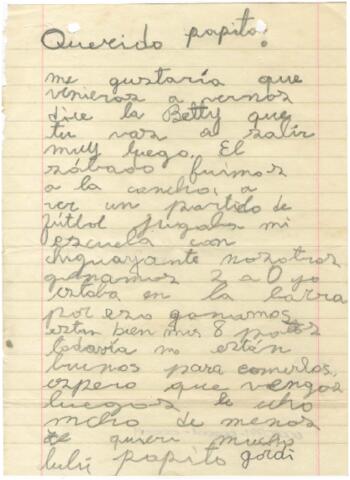 Querido papito:
me gustaría que
vinieras a vernos
dice la Betty que
tu vas a salir
muy luego. El
sábado fuimos
a la cancha, a
ver un partido de
fútbol jugaba mi
escuela con
chiguayante nosotros
ganamos 2 a 0 yo
estaba en la barra
por eso ganamos
estan bien mis 8 patos
todavía no están
buenos para comerlos,
espero que vengas
luego te
mcho de menos
te quiere mucho
lulú papito gordi